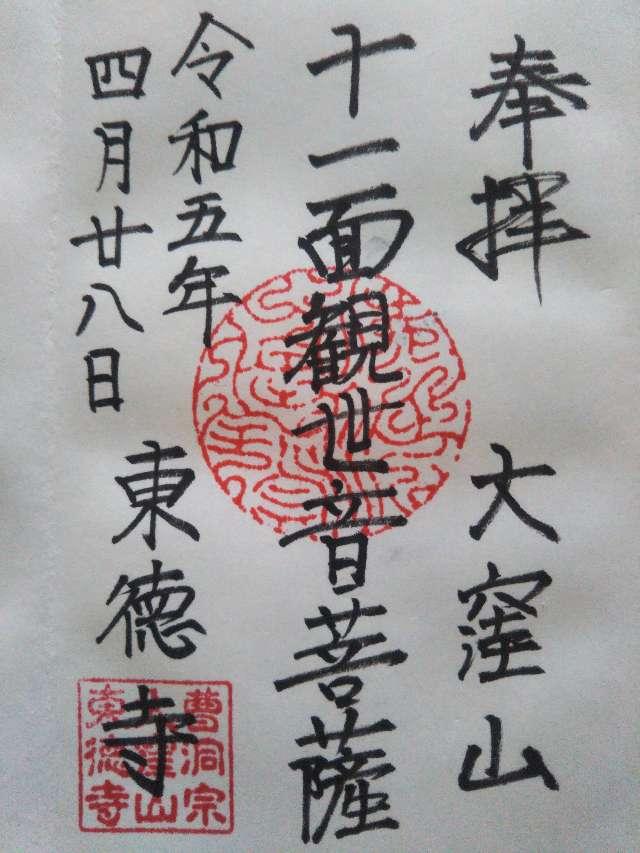 奉拝
大窪山
十一面観世音菩薩
令和五年
四月廿八日
東徳寺
曹洞宗
大窪山
東徳寺